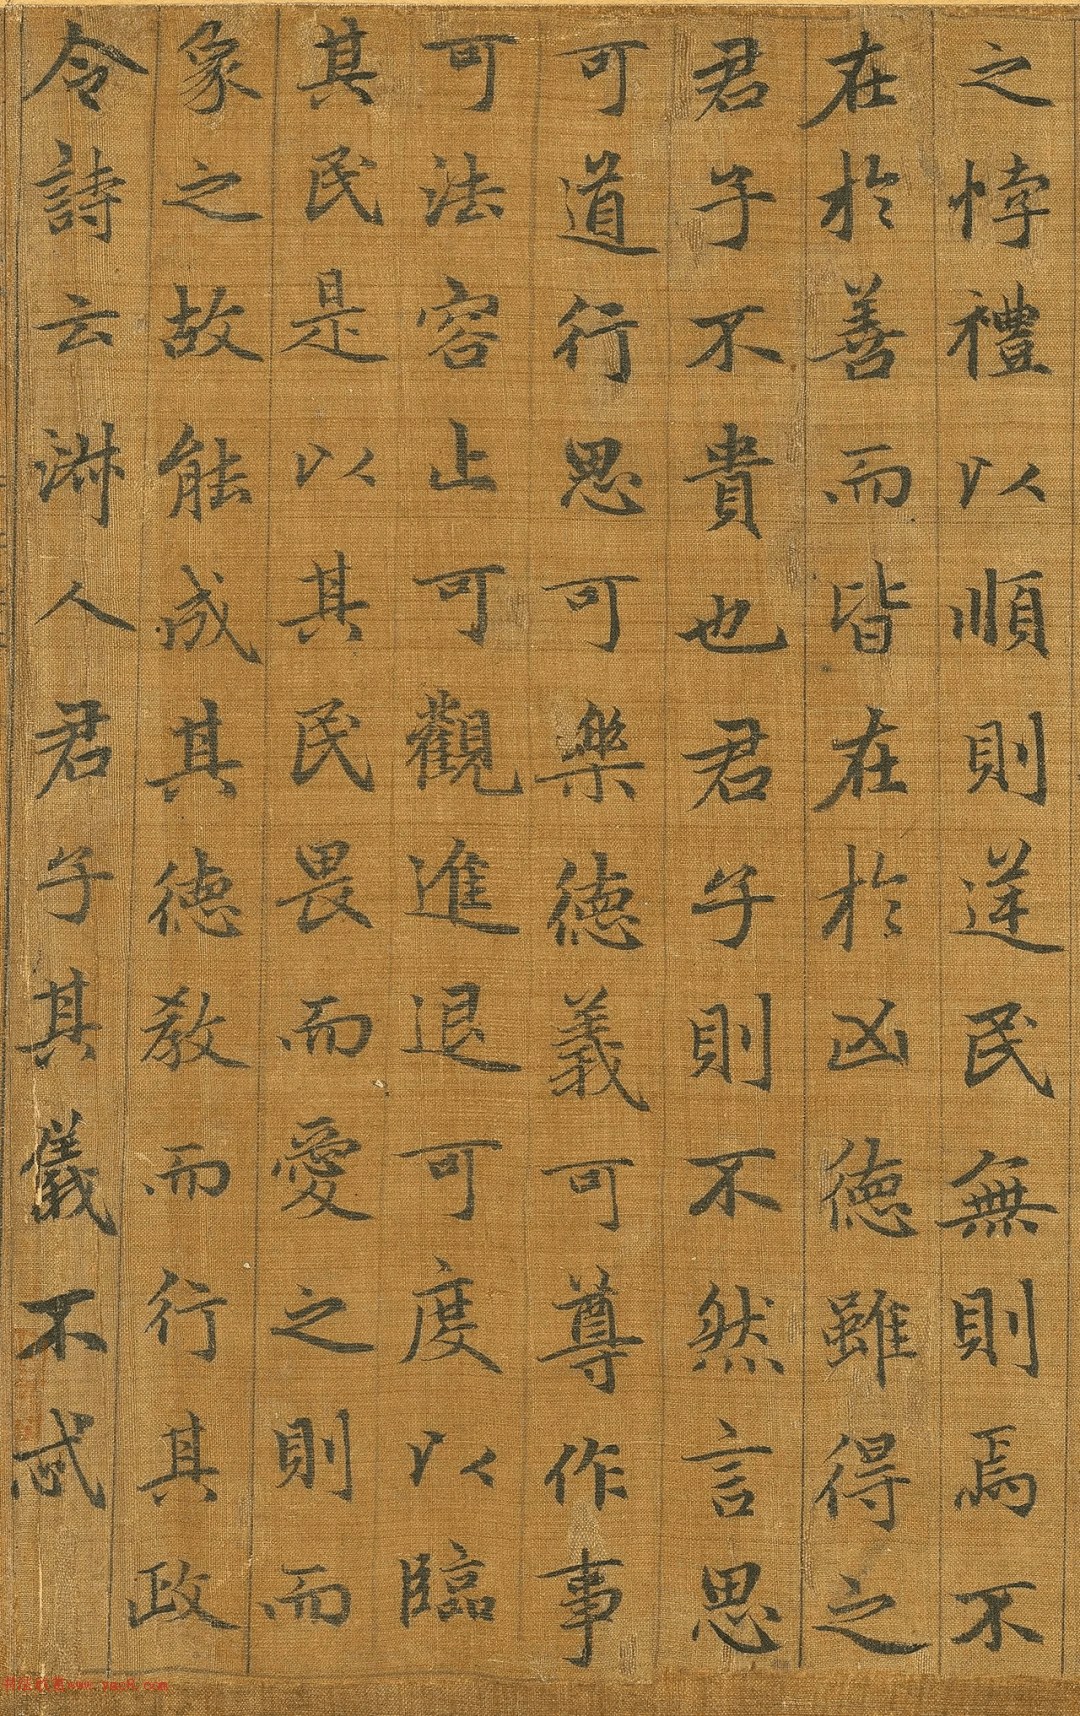 之悖禮以順則逆民無則焉不
在於善而皆在於凶德雖得之
君子不貴也君子則不然言思
可道行思可樂德義可尊作事
可法容止可觀進退可度以臨
其民是以其民畏而愛之則而
象之故能成其德教而行其政
令詩云淑人君子其儀不忒